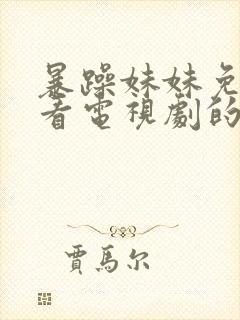 暴躁妹妹免
看電視劇的
賈馬尔